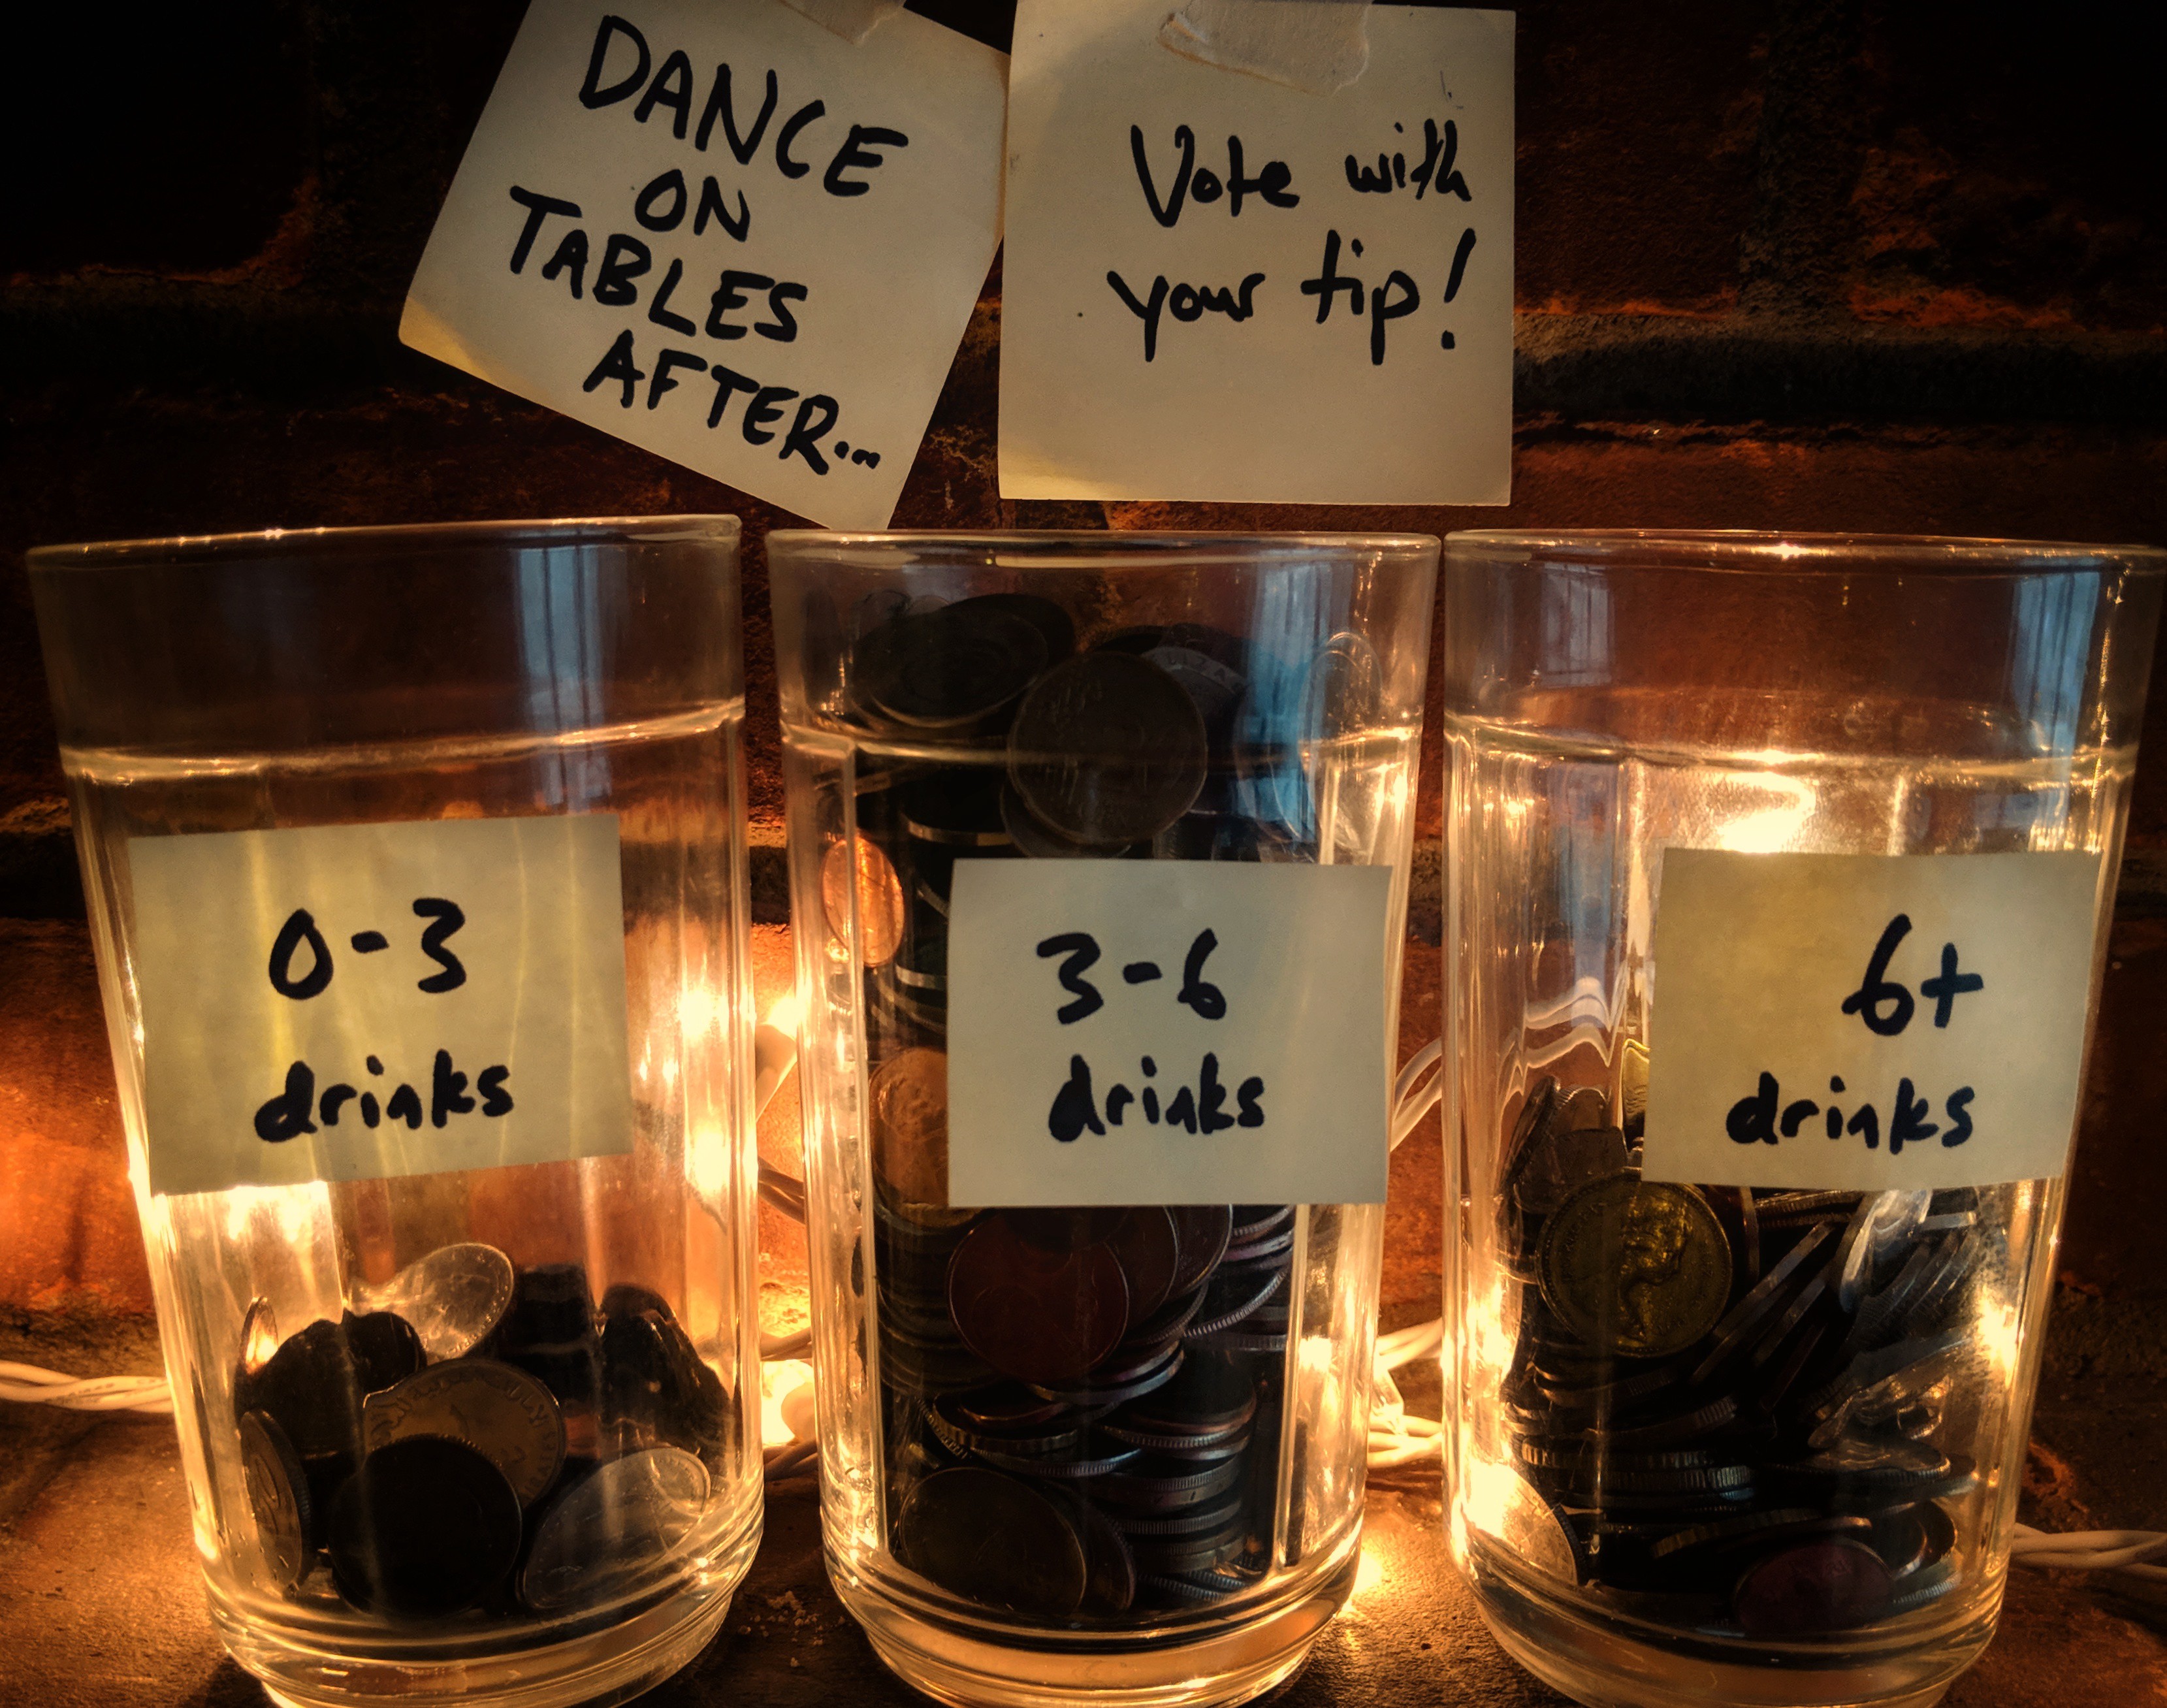 DANCE
ON
TABLES
AFTER...
Vote with
your tip!
0-3
drinks
3-6
drinks
6+
drinks